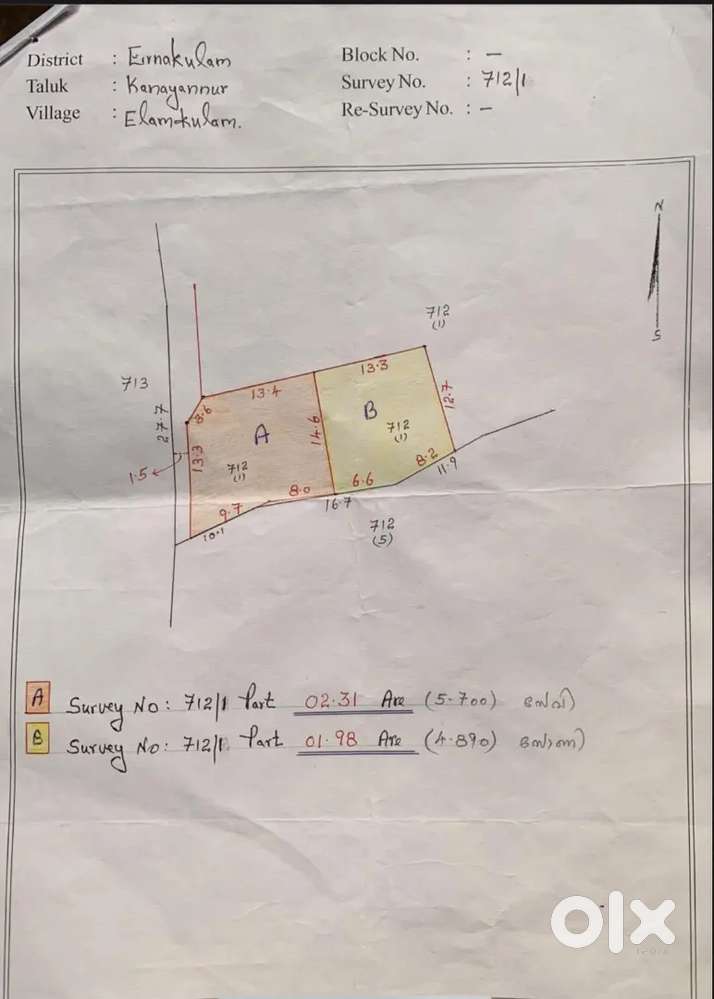 District : Eirnakulam
Taluk : Kanayannur
Village : Elamkulam.
Block No. : –
Survey No. : 712/1
Re-Survey No. : –
N
S
712
(1)
713
13.3
13.4
3.6
27.7
B
12.7
14.6
A
712
(1)
13.3
712
(1)
1.5
8.2
6.6
11.9
8.0
9.7
16.7
10.1
712
(5)
A Survey No: 712/1 Part 02.31 Are (5.700)
B Survey No: 712/1 Part 01.98 Are (4.890)
olx